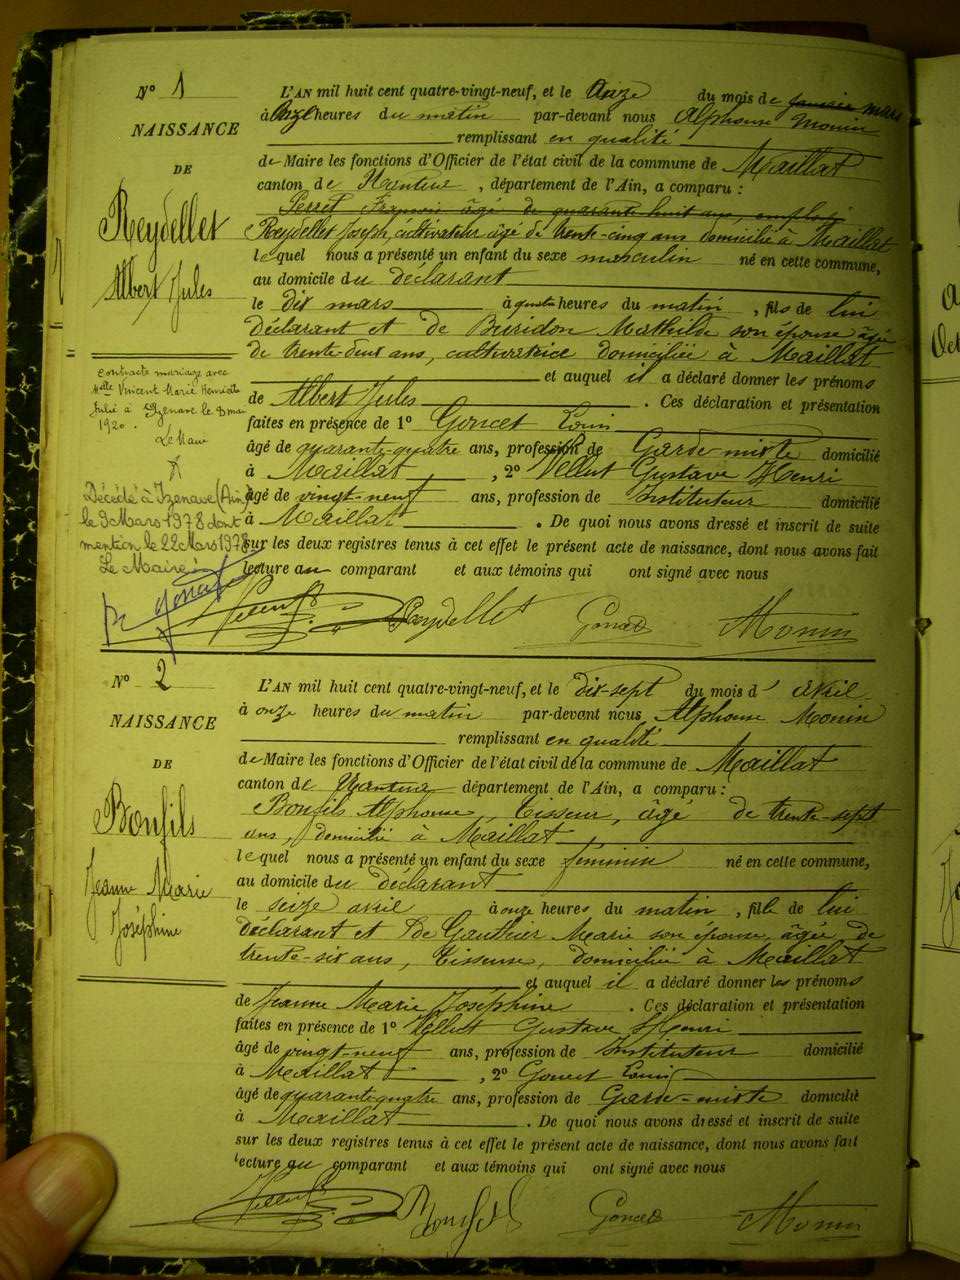 N° 1
NAISSANCE
DE
Reydellet
Albert Jules
Contracte mariage avec
Melle Vincent Marie Henriette
Julie à Izenave le 8 mai
1920.
Le Maire
Décédé à Izenave (Ain)
le 9 Mars 1978 dont
mention le 22 Mars 1978
Le Maire
L'AN mil huit cent quatre-vingt-neuf, et le onze du mois de janvier mars
à onze heures du matin par-devant nous Alphonse Monin
remplissant en qualité
de Maire les fonctions d'Officier de l'état civil de la commune de Maillat
canton de Nantua, département de l'Ain, a comparu :
Perret François âgé de quarante huit ans, employé
Reydellet Joseph, cultivateur âgé de trente-cinq ans domicilié à Maillat
lequel nous a présenté un enfant du sexe masculin né en cette commune,
au domicile du déclarant
le dix mars à quatre heures du matin, fils de lui
déclarant et de Buridon Mathilde son épouse âgée
de trente-deux ans, cultivatrice domiciliée à Maillat
et auquel il a déclaré donner les prénoms
de Albert Jules. Ces déclaration et présentation
faites en présence de 1° Goncet Louis
âgé de quarante-quatre ans, profession de Garde mixte domicilié
à Maillat, 2° Vellut Gustave Henri
âgé de vingt-neuf ans, profession de Instituteur domicilié
à Maillat. De quoi nous avons dressé et inscrit de suite
sur les deux registres tenus à cet effet le présent acte de naissance, dont nous avons fait
lecture au comparant et aux témoins qui ont signé avec nous
Vellut Reydellet Goncet Monin
N° 2
NAISSANCE
DE
Bonfils
Jeanne Marie
Joséphine
L'AN mil huit cent quatre-vingt-neuf, et le dix-sept du mois d'avril
à onze heures du matin par-devant nous Alphonse Monin
remplissant en qualité
de Maire les fonctions d'Officier de l'état civil de la commune de Maillat
canton de Nantua département de l'Ain, a comparu :
Bonfils Alphonse, tisseur, âgé de trente-sept
ans, domicilié à Maillat
lequel nous a présenté un enfant du sexe féminin né en cette commune,
au domicile du déclarant
le seize avril à onze heures du matin, fille de lui
déclarant et de Gauthier Marie son épouse âgée de
trente-six ans, tisseuse, domiciliée à Maillat
et auquel il a déclaré donner les prénoms
de Jeanne Marie Joséphine. Ces déclaration et présentation
faites en présence de 1° Vellut Gustave Henri
âgé de vingt-neuf ans, profession de Instituteur domicilié
à Maillat, 2° Goncet Louis
âgé de quarante-quatre ans, profession de Garde-mixte domicilié
à Maillat. De quoi nous avons dressé et inscrit de suite
sur les deux registres tenus à cet effet le présent acte de naissance, dont nous avons fait
lecture au comparant et aux témoins qui ont signé avec nous
Vellut Bonfils Goncet Monin